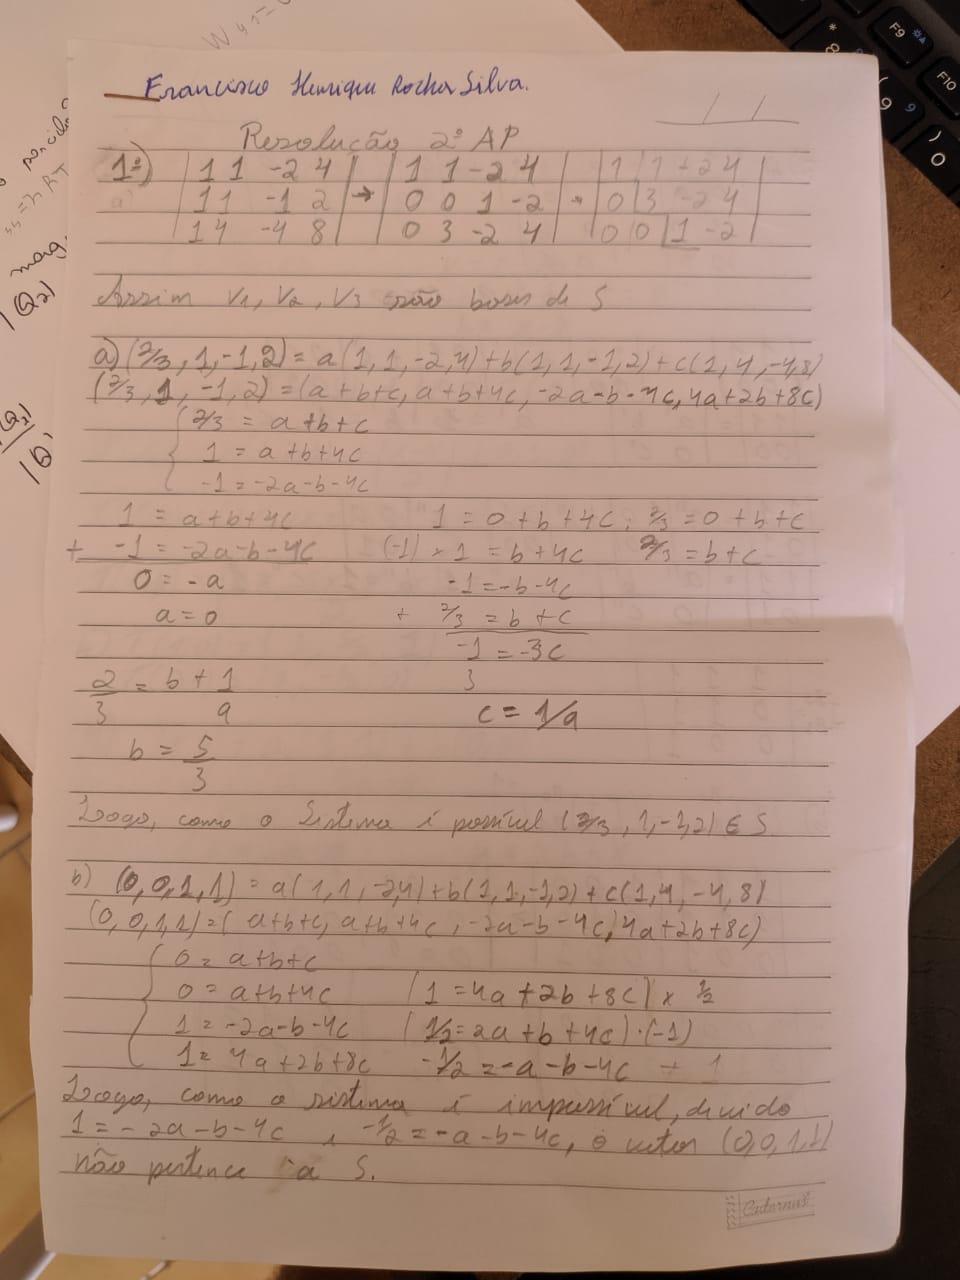 Francisco Henrique Rocha Silva.
Resolução 2ª AP
1º) | 1 1 -2 4 | → | 1 1 -2 4 | → | 1 1 -2 4 |
a) | 1 1 -1 2 | | 0 0 1 -2 | | 0 3 -2 4 |
| 1 4 -4 8 | | 0 3 -2 4 | | 0 0 1 -2 |
Assim V1, V2, V3 são bases de S
a) (2/3, 1, -1, 2) = a(1, 1, -2, 4) + b(1, 1, -1, 2) + c(1, 4, -4, 8)
(2/3, 1, -1, 2) = (a+b+c, a+b+4c, -2a-b-4c, 4a+2b+8c)
2/3 = a+b+c
1 = a+b+4c
-1 = -2a-b-4c
1 = a+b+4c 1 = 0+b+4c; 2/3 = 0+b+c
+ -1 = -2a-b-4c (-1) x 1 = b+4c 2/3 = b+c
0 = -a -1 = -b-4c
a = 0 + 2/3 = b+c
-1/3 = -3c
2/3 = b + 1/9 c = 1/9
b = 5/3
Logo, como o Sistema é possível (2/3, 1, -1, 2) ∈ S
b) (0, 0, 1, 1) = a(1, 1, -2, 4) + b(1, 1, -1, 2) + c(1, 4, -4, 8)
(0, 0, 1, 1) = (a+b+c, a+b+4c, -2a-b-4c, 4a+2b+8c)
0 = a+b+c
0 = a+b+4c (1 = 4a+2b+8c) x 1/2
1 = -2a-b-4c (1/2 = 2a+b+4c)·(-1)
1 = 4a+2b+8c -1/2 = -a-b-4c
Logo, como o sistema é impossível, devido
1 = -2a-b-4c e -1/2 = -a-b-4c, o vetor (0,0,1,1)
não pertence a S.
Cadernus
F9
F10